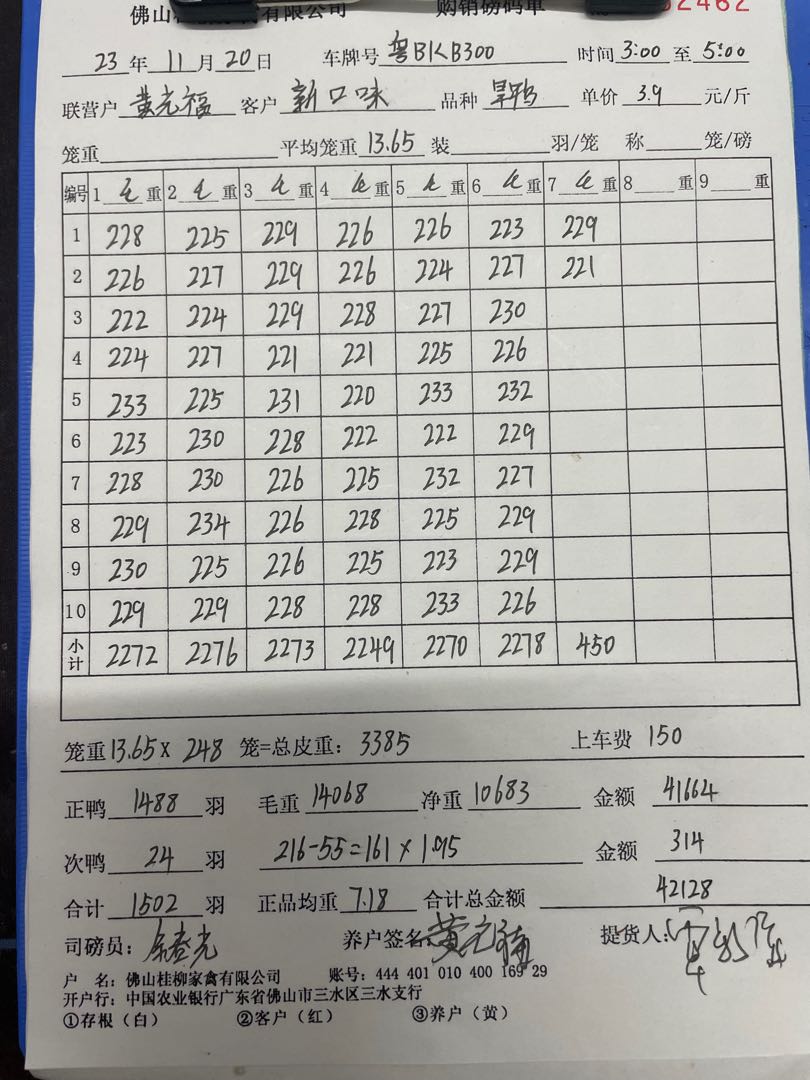 佛山桂柳家禽有限公司 购销磅码单 52462
23年11月20日 车牌号 粤BKB300 时间 3:00 至 5:00
联营户 黄光福 客户 新口味 品种 旱鸭 单价 3.9 元/斤
笼重 平均笼重 13.65 装 羽/笼 称 笼/磅
编号 1 毛重 2 毛重 3 毛重 4 毛重 5 毛重 6 毛重 7 毛重 8 重 9 重
1 228 225 229 226 226 223 229
2 226 227 229 226 224 227 221
3 222 224 229 228 227 230
4 224 227 221 221 225 226
5 233 225 231 220 233 232
6 223 230 228 222 222 229
7 228 230 226 225 232 227
8 229 234 226 228 225 229
9 230 225 226 225 223 229
10 229 229 228 228 233 226
小计 2272 2276 2273 2249 2270 2278 450
笼重 13.65 X 248 笼=总皮重: 3385 上车费 150
正鸭 1488 羽 毛重 14068 净重 10683 金额 41664
次鸭 24 羽 216-55=161 X 1.95 金额 314
合计 1502 羽 正品均重 7.18 合计总金额 42128
司磅员: 养户签名 黄光福 提货人:
户 名: 佛山桂柳家禽有限公司 账号: 444 401 010 400 169 29
开户行: 中国农业银行广东省佛山市三水区三水支行
①存根(白) ②客户(红) ③养户(黄)